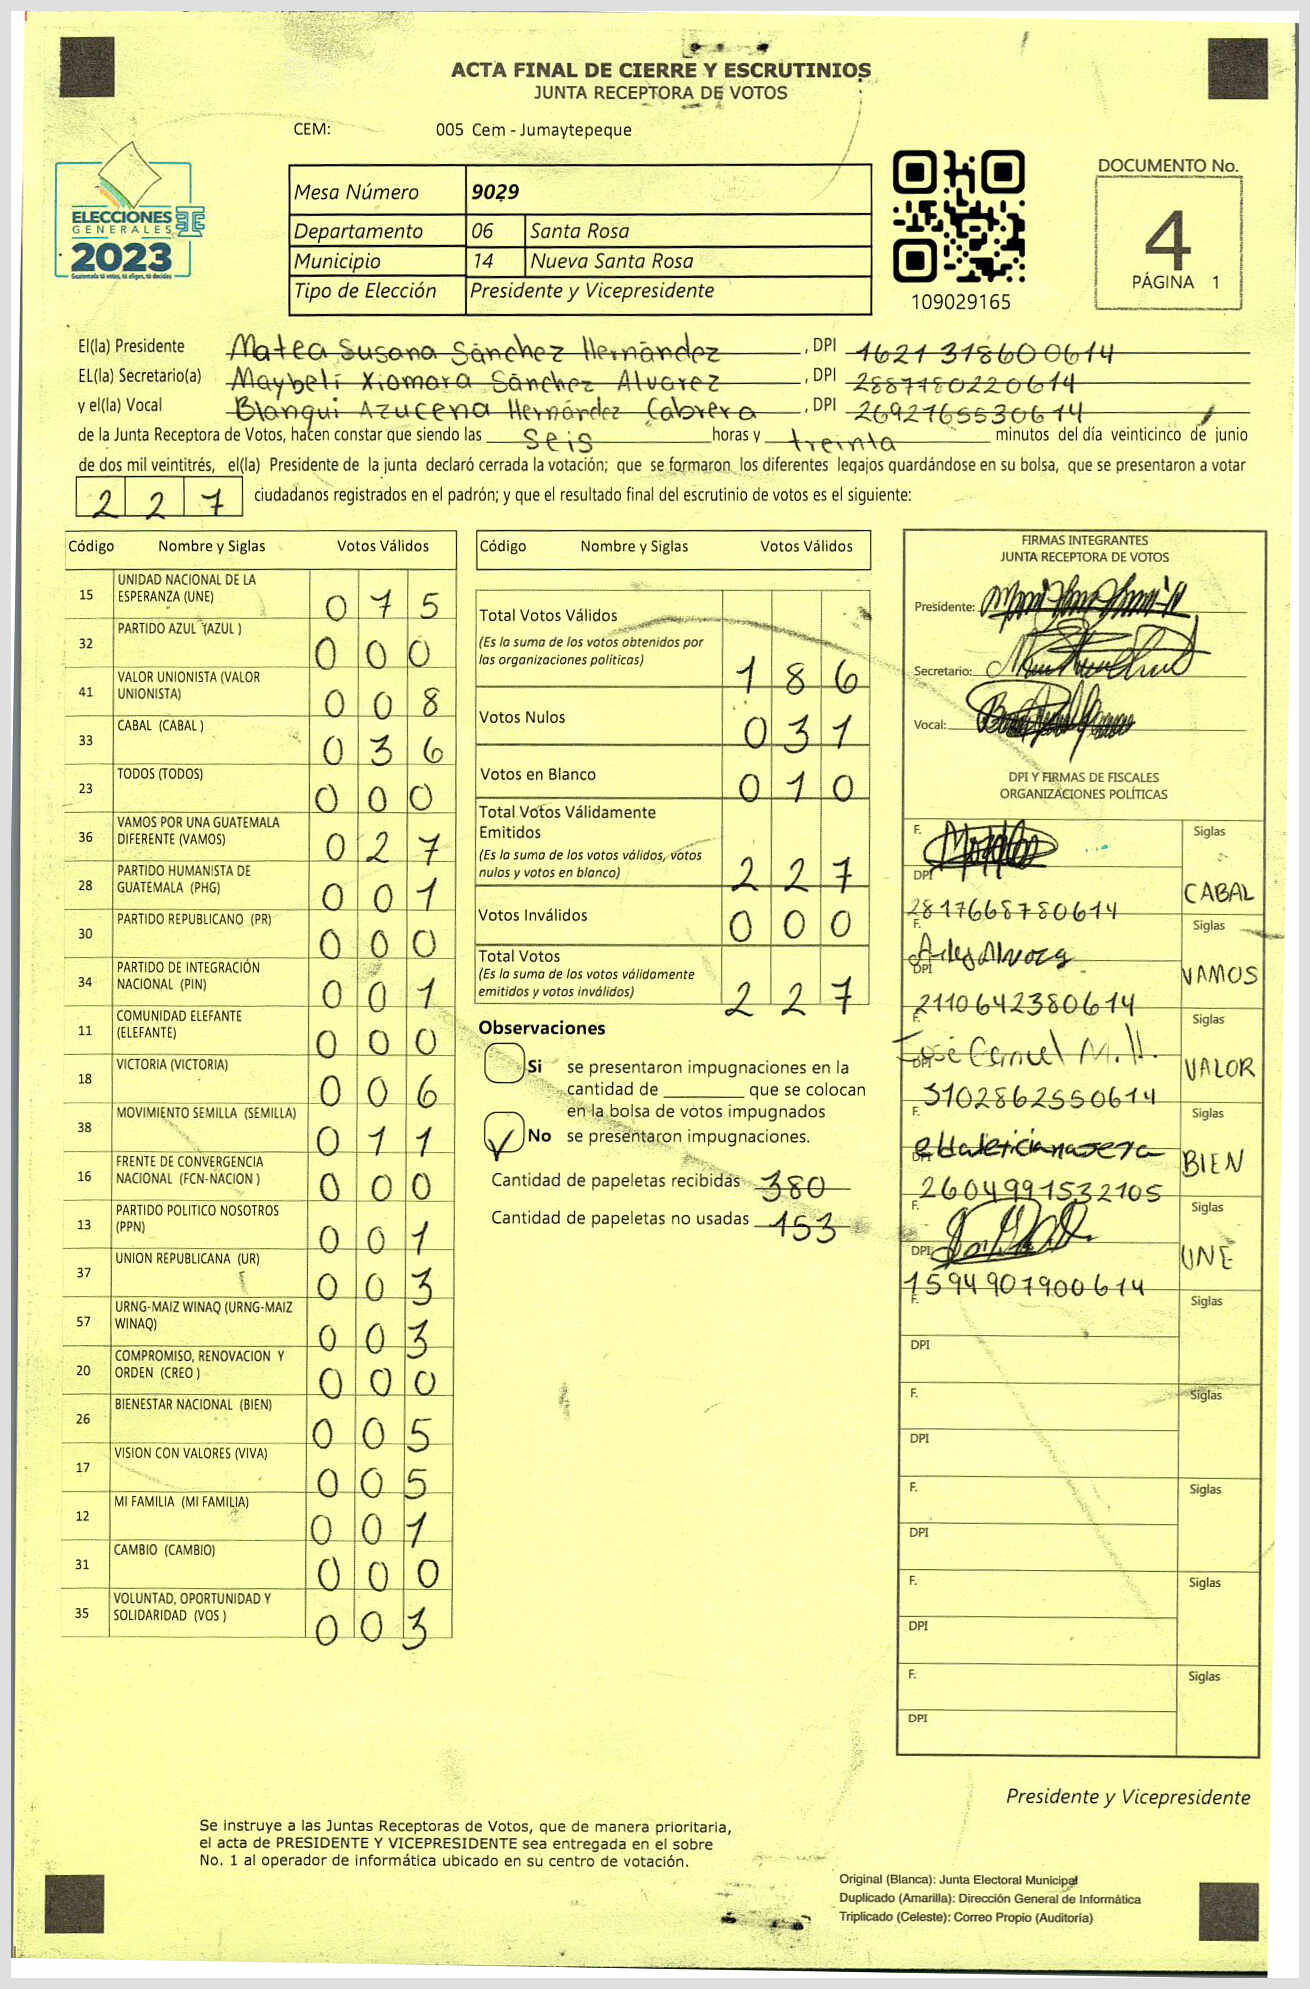 ACTA FINAL DE CIERRE Y ESCRUTINIOS
JUNTA RECEPTORA DE VOTOS
CEM: 005 Cem - Jumaytepeque
ELECCIONES
GENERALES
2023
Guatemala tú votas, tú eliges, tú decides
Mesa Número 9029
Departamento 06 Santa Rosa
Municipio 14 Nueva Santa Rosa
Tipo de Elección Presidente y Vicepresidente
109029165
DOCUMENTO No.
4
PÁGINA 1
El(la) Presidente Matea Susana Sánchez Hernández , DPI 1621318600614
EL(la) Secretario(a) Maybeli Xiomara Sánchez Alvarez , DPI 2887780220614
y el(la) Vocal Blanqui Azucena Hernández Cabrera , DPI 2692765530614
de la Junta Receptora de Votos, hacen constar que siendo las seis horas y treinta minutos del día veinticinco de junio
de dos mil veintitrés, el(la) Presidente de la junta declaró cerrada la votación; que se formaron los diferentes legajos quardándose en su bolsa, que se presentaron a votar
2 2 7 ciudadanos registrados en el padrón; y que el resultado final del escrutinio de votos es el siguiente:
Código Nombre y Siglas Votos Válidos
15 UNIDAD NACIONAL DE LA ESPERANZA (UNE) 0 7 5
32 PARTIDO AZUL (AZUL ) 0 0 0
41 VALOR UNIONISTA (VALOR UNIONISTA) 0 0 8
33 CABAL (CABAL ) 0 3 6
23 TODOS (TODOS) 0 0 0
36 VAMOS POR UNA GUATEMALA DIFERENTE (VAMOS) 0 2 7
28 PARTIDO HUMANISTA DE GUATEMALA (PHG) 0 0 1
30 PARTIDO REPUBLICANO (PR) 0 0 0
34 PARTIDO DE INTEGRACIÓN NACIONAL (PIN) 0 0 1
11 COMUNIDAD ELEFANTE (ELEFANTE) 0 0 0
18 VICTORIA (VICTORIA) 0 0 6
38 MOVIMIENTO SEMILLA (SEMILLA) 0 1 1
16 FRENTE DE CONVERGENCIA NACIONAL (FCN-NACION ) 0 0 0
13 PARTIDO POLITICO NOSOTROS (PPN) 0 0 1
37 UNION REPUBLICANA (UR) 0 0 3
57 URNG-MAIZ WINAQ (URNG-MAIZ WINAQ) 0 0 3
20 COMPROMISO, RENOVACION Y ORDEN (CREO ) 0 0 0
26 BIENESTAR NACIONAL (BIEN) 0 0 5
17 VISION CON VALORES (VIVA) 0 0 5
12 MI FAMILIA (MI FAMILIA) 0 0 1
31 CAMBIO (CAMBIO) 0 0 0
35 VOLUNTAD, OPORTUNIDAD Y SOLIDARIDAD (VOS ) 0 0 3
Código Nombre y Siglas Votos Válidos
Total Votos Válidos
(Es la suma de los votos obtenidos por
las organizaciones políticas) 1 8 6
Votos Nulos 0 3 1
Votos en Blanco 0 1 0
Total Votos Válidamente
Emitidos
(Es la suma de los votos válidos, votos
nulos y votos en blanco) 2 2 7
Votos Inválidos 0 0 0
Total Votos
(Es la suma de los votos válidamente
emitidos y votos inválidos) 2 2 7
Observaciones
Si se presentaron impugnaciones en la
cantidad de ________ que se colocan
en la bolsa de votos impugnados
No se presentaron impugnaciones.
Cantidad de papeletas recibidas 380
Cantidad de papeletas no usadas 153
FIRMAS INTEGRANTES
JUNTA RECEPTORA DE VOTOS
Presidente:
Secretario:
Vocal:
DPI Y FIRMAS DE FISCALES
ORGANIZACIONES POLÍTICAS
F. Siglas
DPI 2817668780614 CABAL
F. Siglas
DPI 2110642380614 VAMOS
F. José M. H. Siglas
DPI 3102862550614 VALOR
F. Siglas
DPI 2604991532105 BIEN
F. Siglas
DPI 1594907900614 UNE
F. Siglas
DPI
F. Siglas
DPI
F. Siglas
DPI
F. Siglas
DPI
F. Siglas
DPI
Presidente y Vicepresidente
Se instruye a las Juntas Receptoras de Votos, que de manera prioritaria,
el acta de PRESIDENTE Y VICEPRESIDENTE sea entregada en el sobre
No. 1 al operador de informática ubicado en su centro de votación.
Original (Blanca): Junta Electoral Municipal
Duplicado (Amarilla): Dirección General de Informática
Triplicado (Celeste): Correo Propio (Auditoría)